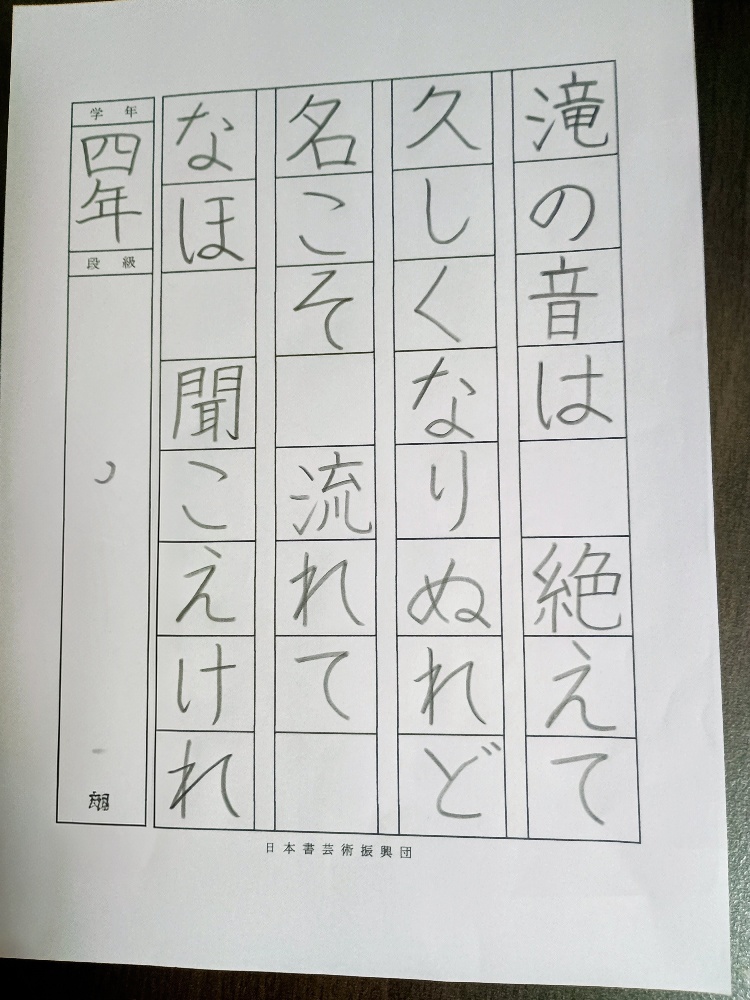 滝の音は　絶えて
久しくなりぬれど
名こそ　流れて
なほ　聞こえけれ
学年
四年
段級
日本書芸術振興団